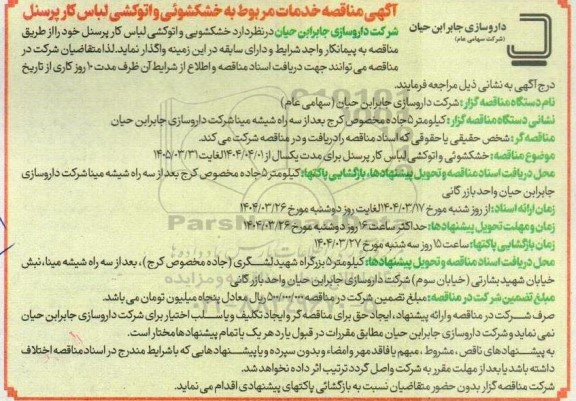 آگهی مناقصه خدمات مربوط به خشکشوئی و اتوکشی لباس کار پرسنل
داروسازی جابرابن حیان
(شرکت سهامی عام)
شرکت داروسازی جابرابن حیان در نظر دارد خشکشویی و اتوکشی لباس کار پرسنل خود را از طریق
مناقصه به پیمانکار واجد شرایط و دارای سابقه در این زمینه واگذار نماید. لذا متقاضیان شرکت در
مناقصه می توانند جهت دریافت اسناد مناقصه و اطلاع از شرایط آن ظرف مدت ۱۰ روز کاری از تاریخ
درج آگهی به نشانی ذیل مراجعه فرمایند.
نام دستگاه مناقصه گزار: شرکت داروسازی جابرابن حیان (سهامی عام)
نشانی دستگاه مناقصه گزار: کیلومتر ۵ جاده مخصوص کرج بعد از سه راه شیشه مینا شرکت داروسازی جابرابن حیان
مناقصه گر: شخص حقیقی یا حقوقی که اسناد مناقصه را دریافت و در مناقصه شرکت می کند.
موضوع مناقصه: خشکشوئی و اتوکشی لباس کار پرسنل برای مدت یکسال از ۱۴۰۴/۰۴/۰۱ لغایت ۱۴۰۵/۰۳/۳۱
محل دریافت اسناد مناقصه و تحویل پیشنهادها، بازگشایی پاکتها: کیلومتر ۵ جاده مخصوص کرج بعد از سه راه شیشه مینا شرکت داروسازی
جابرابن حیان واحد بازرگانی
زمان ارائه اسناد: از روز شنبه مورخ ۱۴۰۴/۰۳/۱۷ لغایت روز دوشنبه مورخ ۱۴۰۴/۰۳/۲۶
زمان و مهلت تحویل پیشنهادها: حداکثر ساعت ۱۶ روز دوشنبه مورخ ۱۴۰۴/۰۳/۲۶
زمان بازگشایی پاکتها: ساعت ۱۵ روز سه شنبه مورخ ۱۴۰۴/۰۳/۲۷
محل دریافت اسناد مناقصه و تحویل پیشنهادها: کیلومتر ۵ بزرگراه شهید لشگری (جاده مخصوص کرج)، بعد از سه راه شیشه مینا، نبش
خیابان شهید بشارتی (خیابان سوم) شرکت داروسازی جابرابن حیان واحد بازرگانی
مبلغ تضمین شرکت در مناقصه: مبلغ تضمین شرکت در مناقصه ریال معادل پنجاه میلیون تومان می باشد.
صرف شرکت در مناقصه و ارائه پیشنهاد، ایجاد حق برای مناقصه گر و ایجاد تکلیف و یا سلب اختیار برای شرکت داروسازی جابرابن حیان
نمی نماید و شرکت داروسازی جابرابن حیان مطابق مقررات در قبول یا رد هر یک یا تمام پیشنهادها مختار است.
به پیشنهادهای ناقص، مشروط، مبهم یا فاقد مهر و امضاء و بدون سپرده و یا پیشنهادهایی که با شرایط مندرج در اسناد مناقصه اختلاف
داشته باشد یا بعد از مهلت مقرر به شرکت واصل گردد ترتیب اثر داده نخواهد شد.
شرکت مناقصه گزار بدون حضور متقاضیان نسبت به بازگشائی پاکتهای پیشنهادی اقدام می نماید.